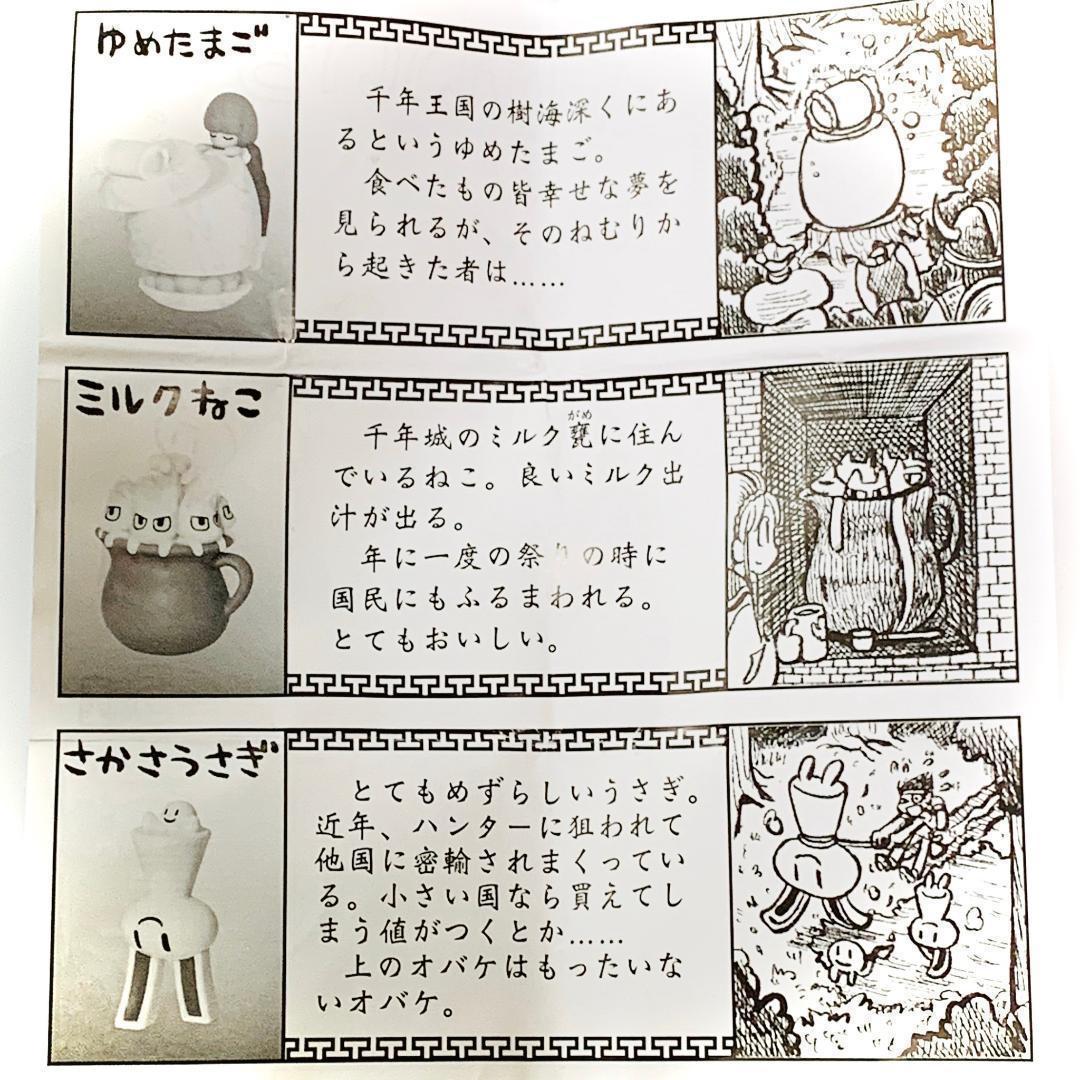 ゆめたまご
千年王国の樹海深くにあ
るというゆめたまご。
食べたもの皆幸せな夢を
見られるが、そのねむりか
ら起きた者は……
ミルクねこ
千年城のミルク甕に住ん
がめ
でいるねこ。良いミルク出
汁が出る。
年に一度の祭りの時に
国民にもふるまわれる。
とてもおいしい。
さかさうさぎ
とてもめずらしいうさぎ。
近年、ハンターに狙われて
他国に密輸されまくってい
る。小さい国なら買えてし
まう値がつくとか……
上のオバケはもったいな
いオバケ。